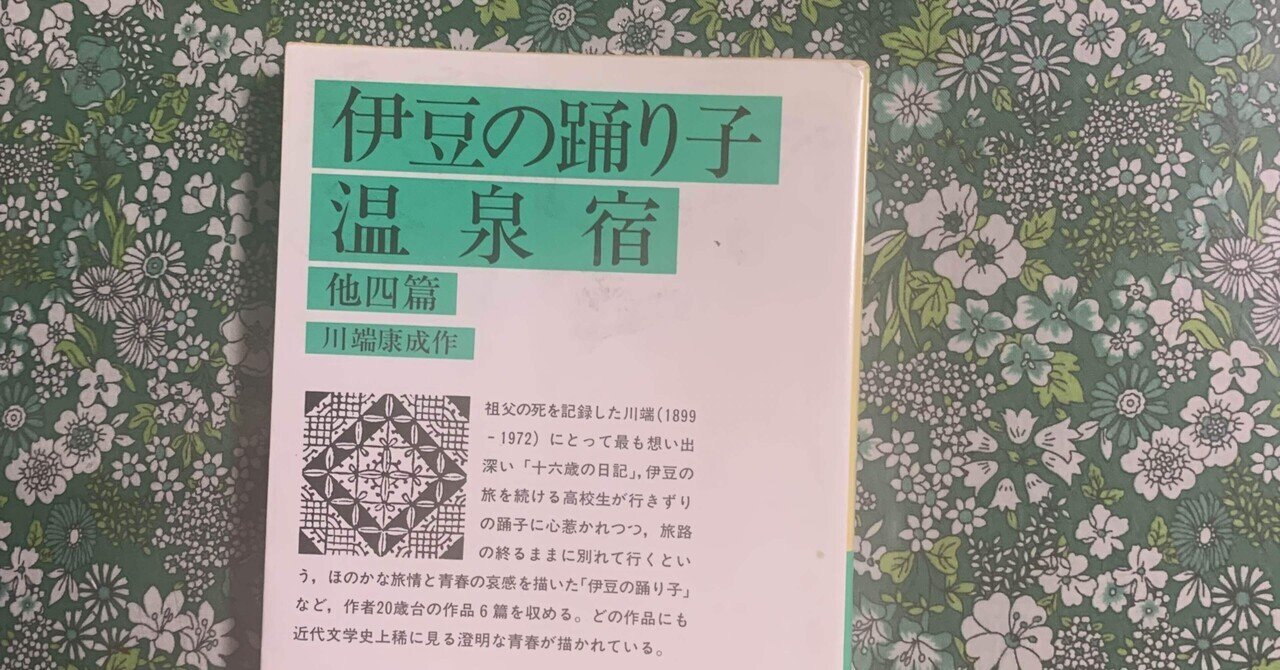 伊豆の踊り子
温泉宿
他四篇
川端康成作
祖父の死を記録した川端(1899
-1972)にとって最も想い出
深い「十六歳の日記」,伊豆の
旅を続ける高校生が行きずり
の踊子に心惹かれつつ,旅路
の終るままに別れて行くとい
う,ほのかな旅情と青春の哀感を描いた「伊豆の踊り子」
など,作者20歳台の作品6篇を収める。どの作品にも
近代文学史上稀に見る澄明な青春が描かれている。